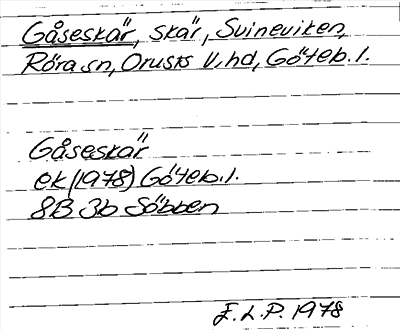 Gåseskär, skär, Svineviken,
Röra sn, Orusts V. hd, Göteb. l.
Gåseskär
ek (1978) Göteb. l.
8B 3b Söbben
E. L. P. 1978